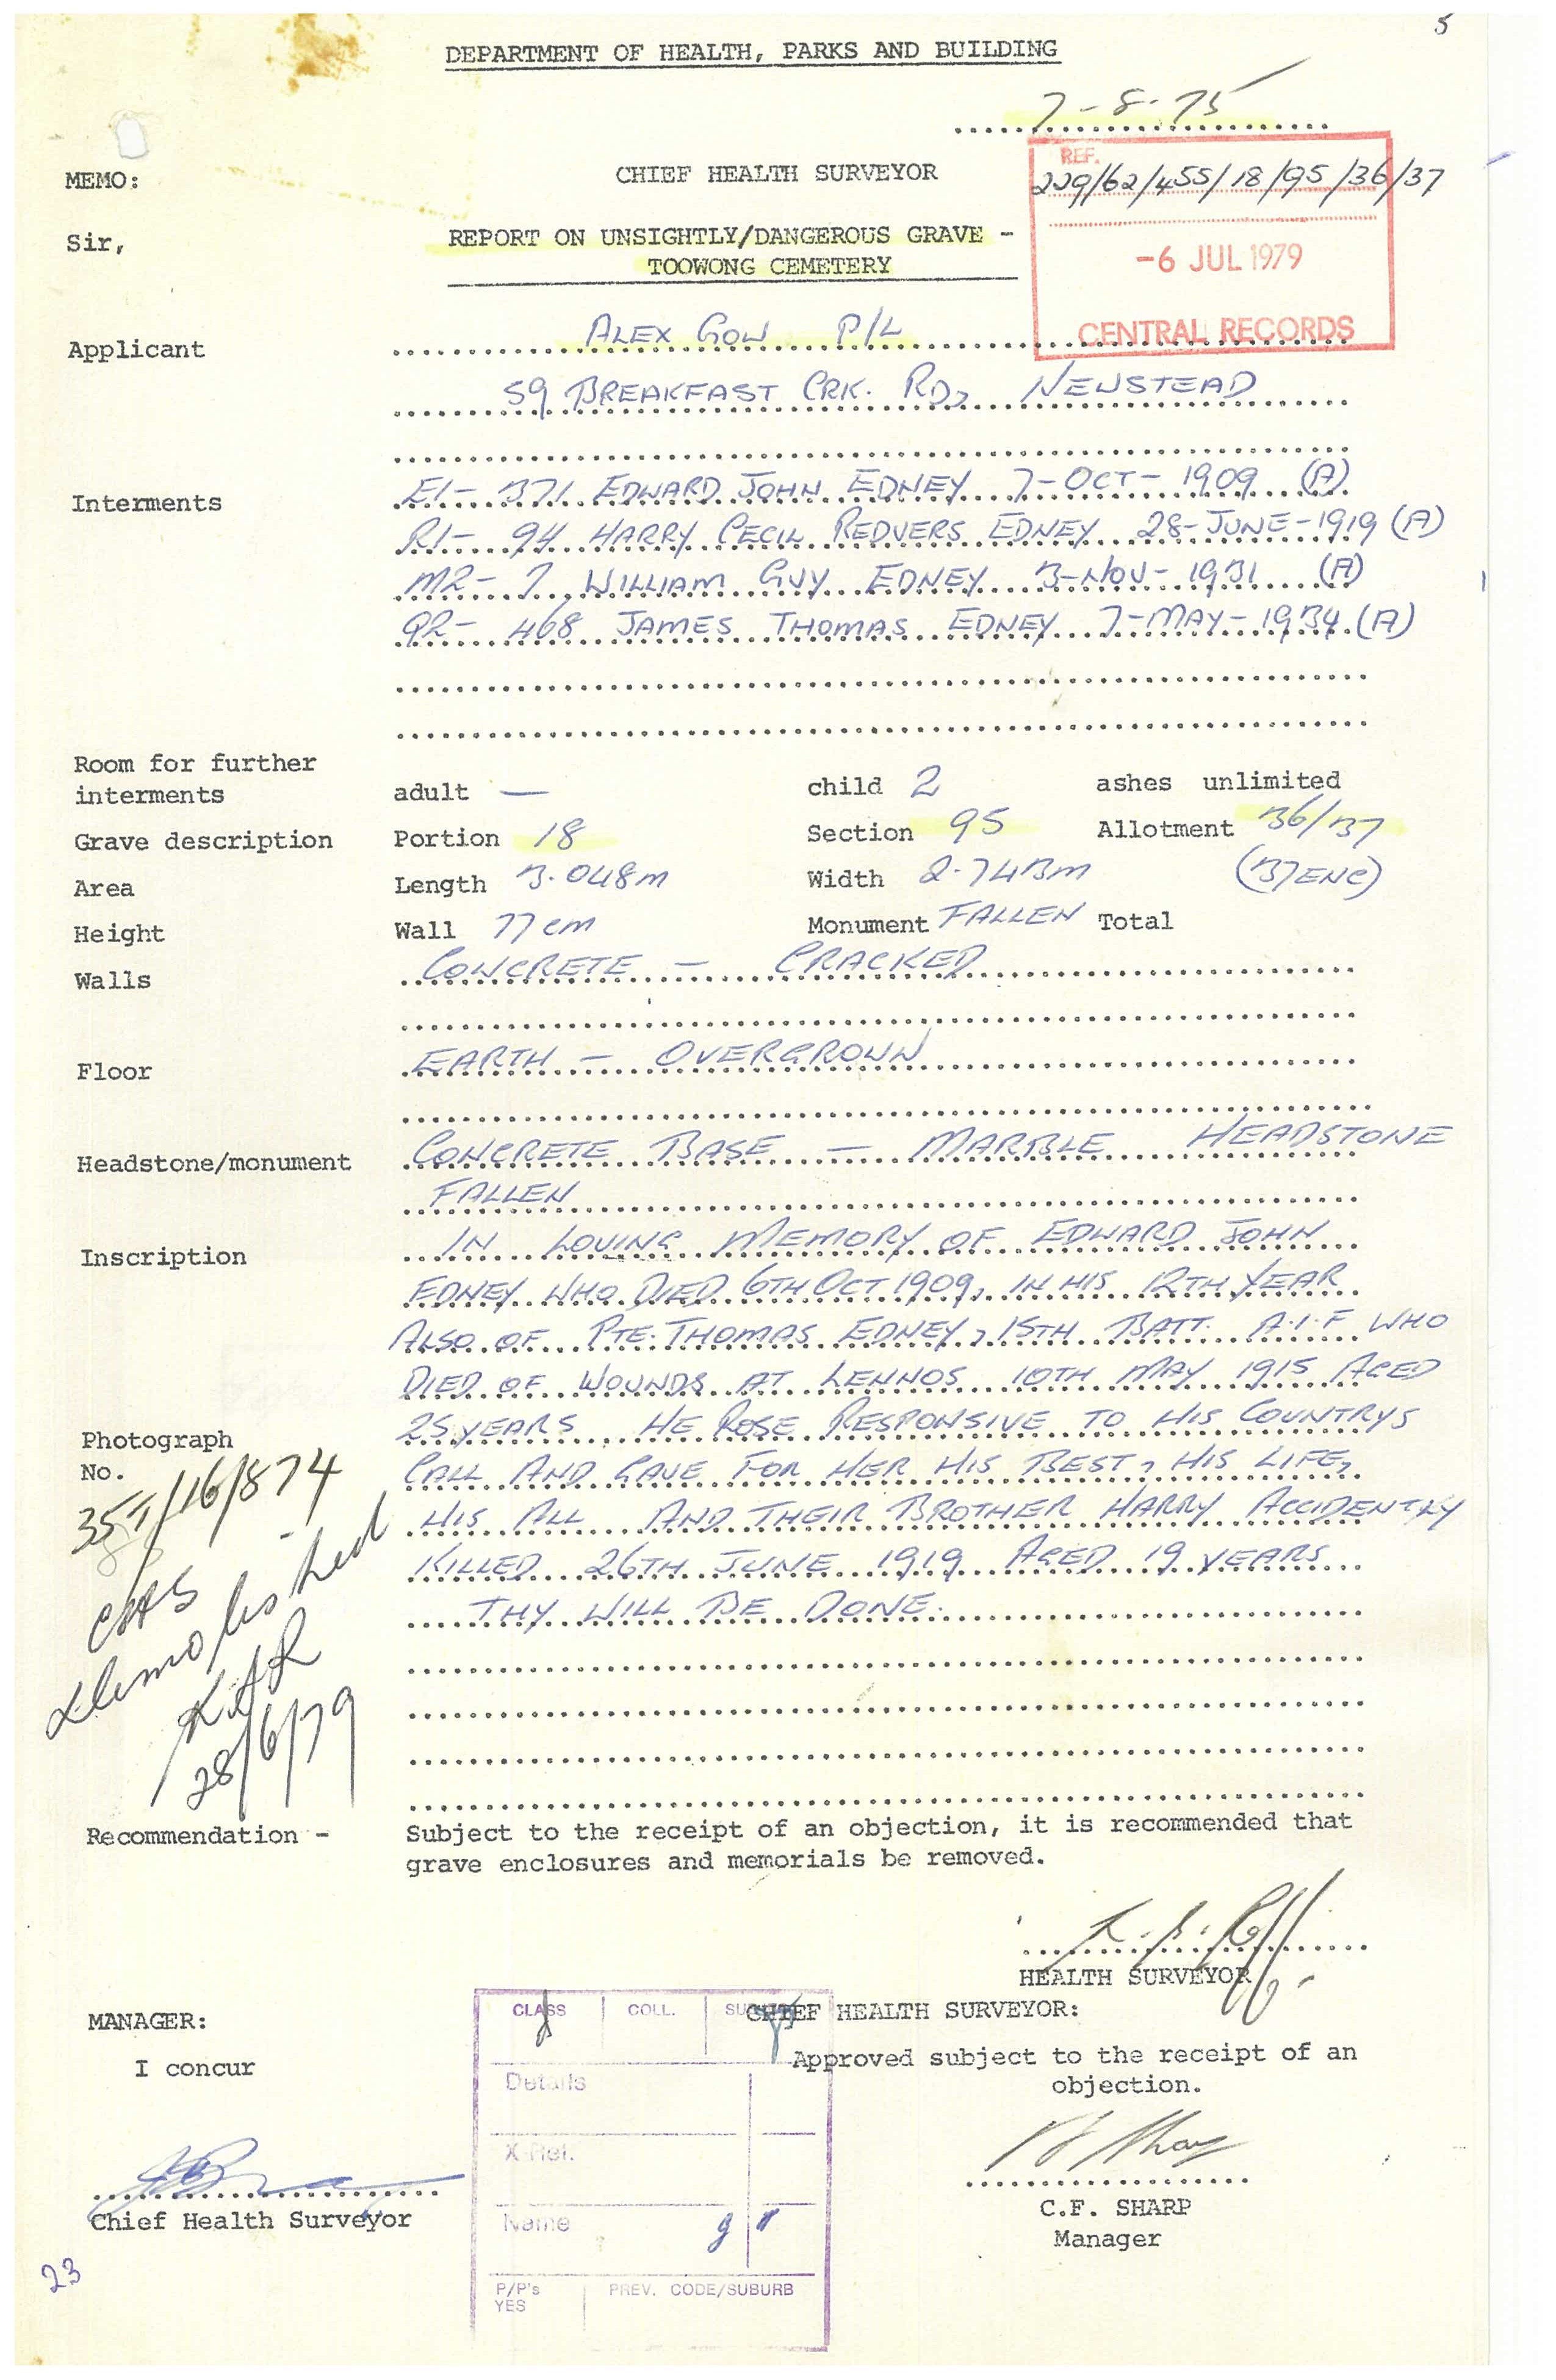 5
DEPARTMENT OF HEALTH, PARKS AND BUILDING
7-8-75
REF.
229/62/455/18/95/36/37
-6 JUL 1979
CENTRAL RECORDS
MEMO:
CHIEF HEALTH SURVEYOR
Sir,
REPORT ON UNSIGHTLY/DANGEROUS GRAVE -
TOOWONG CEMETERY
Applicant ALEX GOW P/L
59 BREAKFAST CRK. RD, NEWSTEAD
Interments E1- 371 EDWARD JOHN EDNEY 7-OCT-1909 (A)
R1- 94 HARRY CECIL REDVERS EDNEY 28-JUNE-1919 (A)
M2- 7 WILLIAM GUY EDNEY 3-NOV-1931 (A)
Q2- 468 JAMES THOMAS EDNEY 7-MAY-1934 (A)
Room for further
interments adult — child 2 ashes unlimited
Grave description Portion 18 Section 95 Allotment 36/37
Area Length 3.048m Width 2.743m (37 ENC)
Height Wall 77cm Monument FALLEN Total
Walls CONCRETE - CRACKED
Floor EARTH - OVERGROWN
Headstone/monument CONCRETE BASE - MARBLE HEADSTONE
FALLEN
Inscription IN LOVING MEMORY OF EDWARD JOHN
EDNEY WHO DIED 6TH OCT 1909, IN HIS 12TH YEAR
ALSO OF PTE. THOMAS EDNEY, 15TH BATT. A.I.F WHO
DIED OF WOUNDS AT LENNOS 10TH MAY 1915 AGED
25 YEARS HE ROSE RESPONSIVE TO HIS COUNTRYS
CALL AND GAVE FOR HER HIS BEST, HIS LIFE,
HIS ALL AND THEIR BROTHER HARRY ACCIDENTLY
KILLED 26TH JUNE 1919 AGED 19 YEARS
THY WILL BE DONE.
Photograph
No.
/16/874
demolished
28/6/79
Recommendation - Subject to the receipt of an objection, it is recommended that
grave enclosures and memorials be removed.
HEALTH SURVEYOR
MANAGER:
I concur
Chief Health Surveyor
CHIEF HEALTH SURVEYOR:
Approved subject to the receipt of an
objection.
C.F. SHARP
Manager
CLASS COLL.
Details
X-Ref.
Name
P/P's PREV. CODE/SUBURB
YES
23